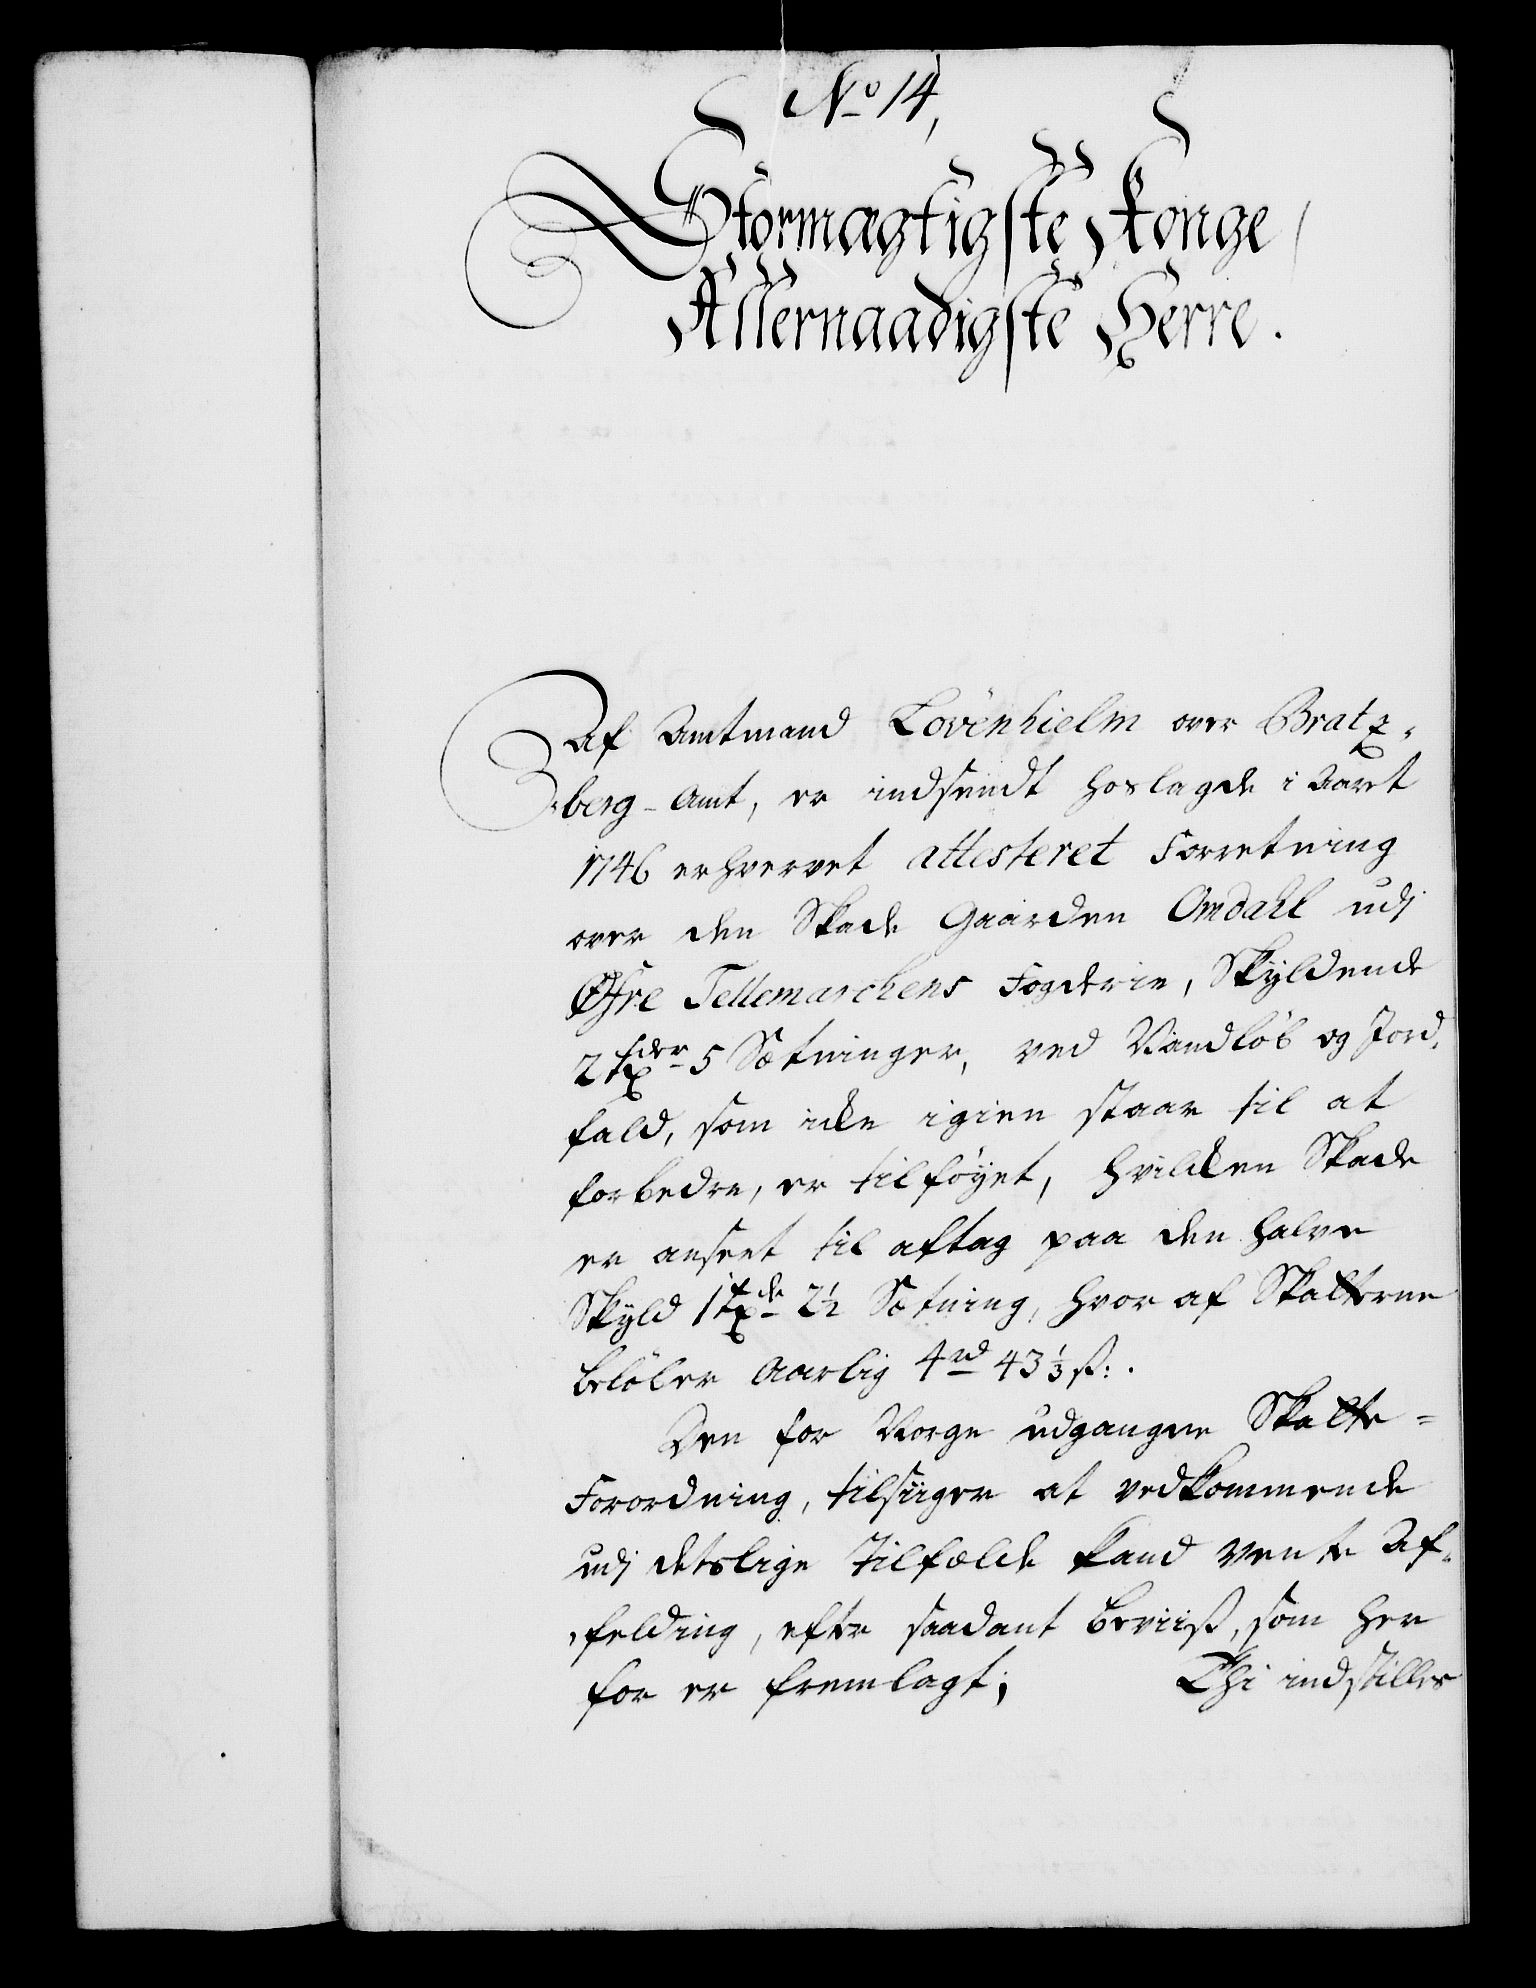 No 14,
Stormægtigste Konge
Allernaadigste Herre.
Af Amtmand Lövenhielm over Bratz-
berg-Amt, er indsendt hoslagde i Aaret
1746 erhvervet attesteret Forretning
over den Skade Gaarden Omdahl udj
Øfre Tellemarchens Fogderie, Skyldende
2 txder 5 Sætninger, ved Vandløb og Jord,
fald, som icke igien staar til at
forbedre, er tilföyet, hvilcken Skade
er anseet til aftag paa den halve
Skyld 1 txde 2½ Sætning, hvor af Skatterne
belöber Aarlig 4 rd 43⅓ ß:.
Den for Norge udgangne Skatte=
Forordning, tilsiiger at vedkommende
udj deslige Tilfælde kand vente Af-
felding, efter saadant Beviiß, som her
for er fremlagt; Thi indstilles